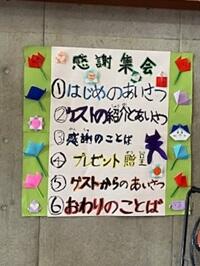 感謝集会
①はじめのあいさつ
②ゲストの紹介とあいさつ
③感謝のことば
④プレゼント贈呈
⑤ゲストからのあいさつ
⑥おわりのことば